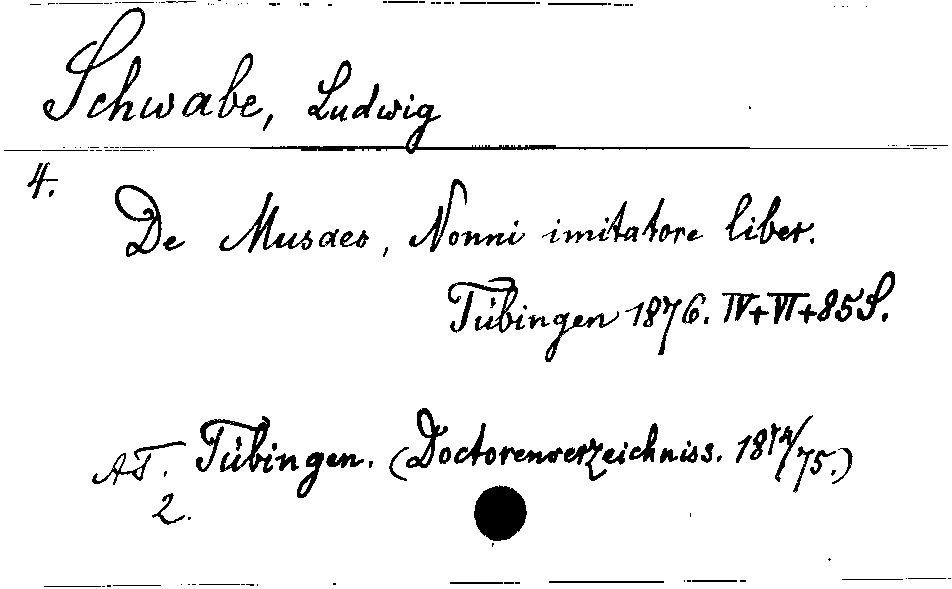 Schwabe, Ludwig
4.
De Musaeo, Nonni imitatore liber.
Tübingen 1876. IV+VI+85S.
AT. Tübingen. (Doctorenverzeichniss. 1874/75.)
2.